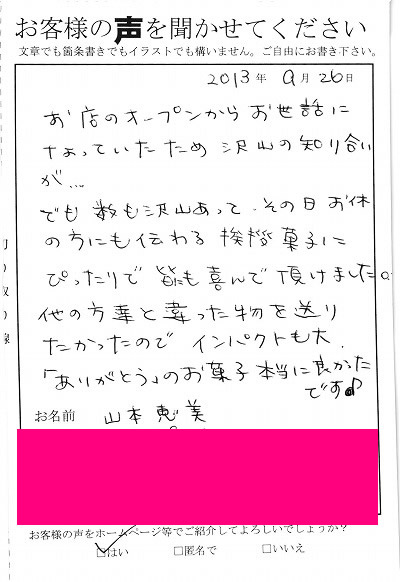 お客様の声を聞かせてください
文章でも箇条書きでもイラストでも構いません。ご自由にお書き下さい。
2013年 9月26日
お店のオープンからお世話に
なっていたため沢山の知り合い
が…
でも数も沢山あって、その日お休
の方にも伝わる挨拶菓子に
ぴったりで皆にも喜んで頂けました。
他の方々と違った物を送り
たかったので インパクトも大、
「ありがとう」のお菓子本当に良かった
です♪
お名前 山本恵美
お客様の声をホームページ等でご紹介してよろしいでしょうか？
□はい □匿名で □いいえ